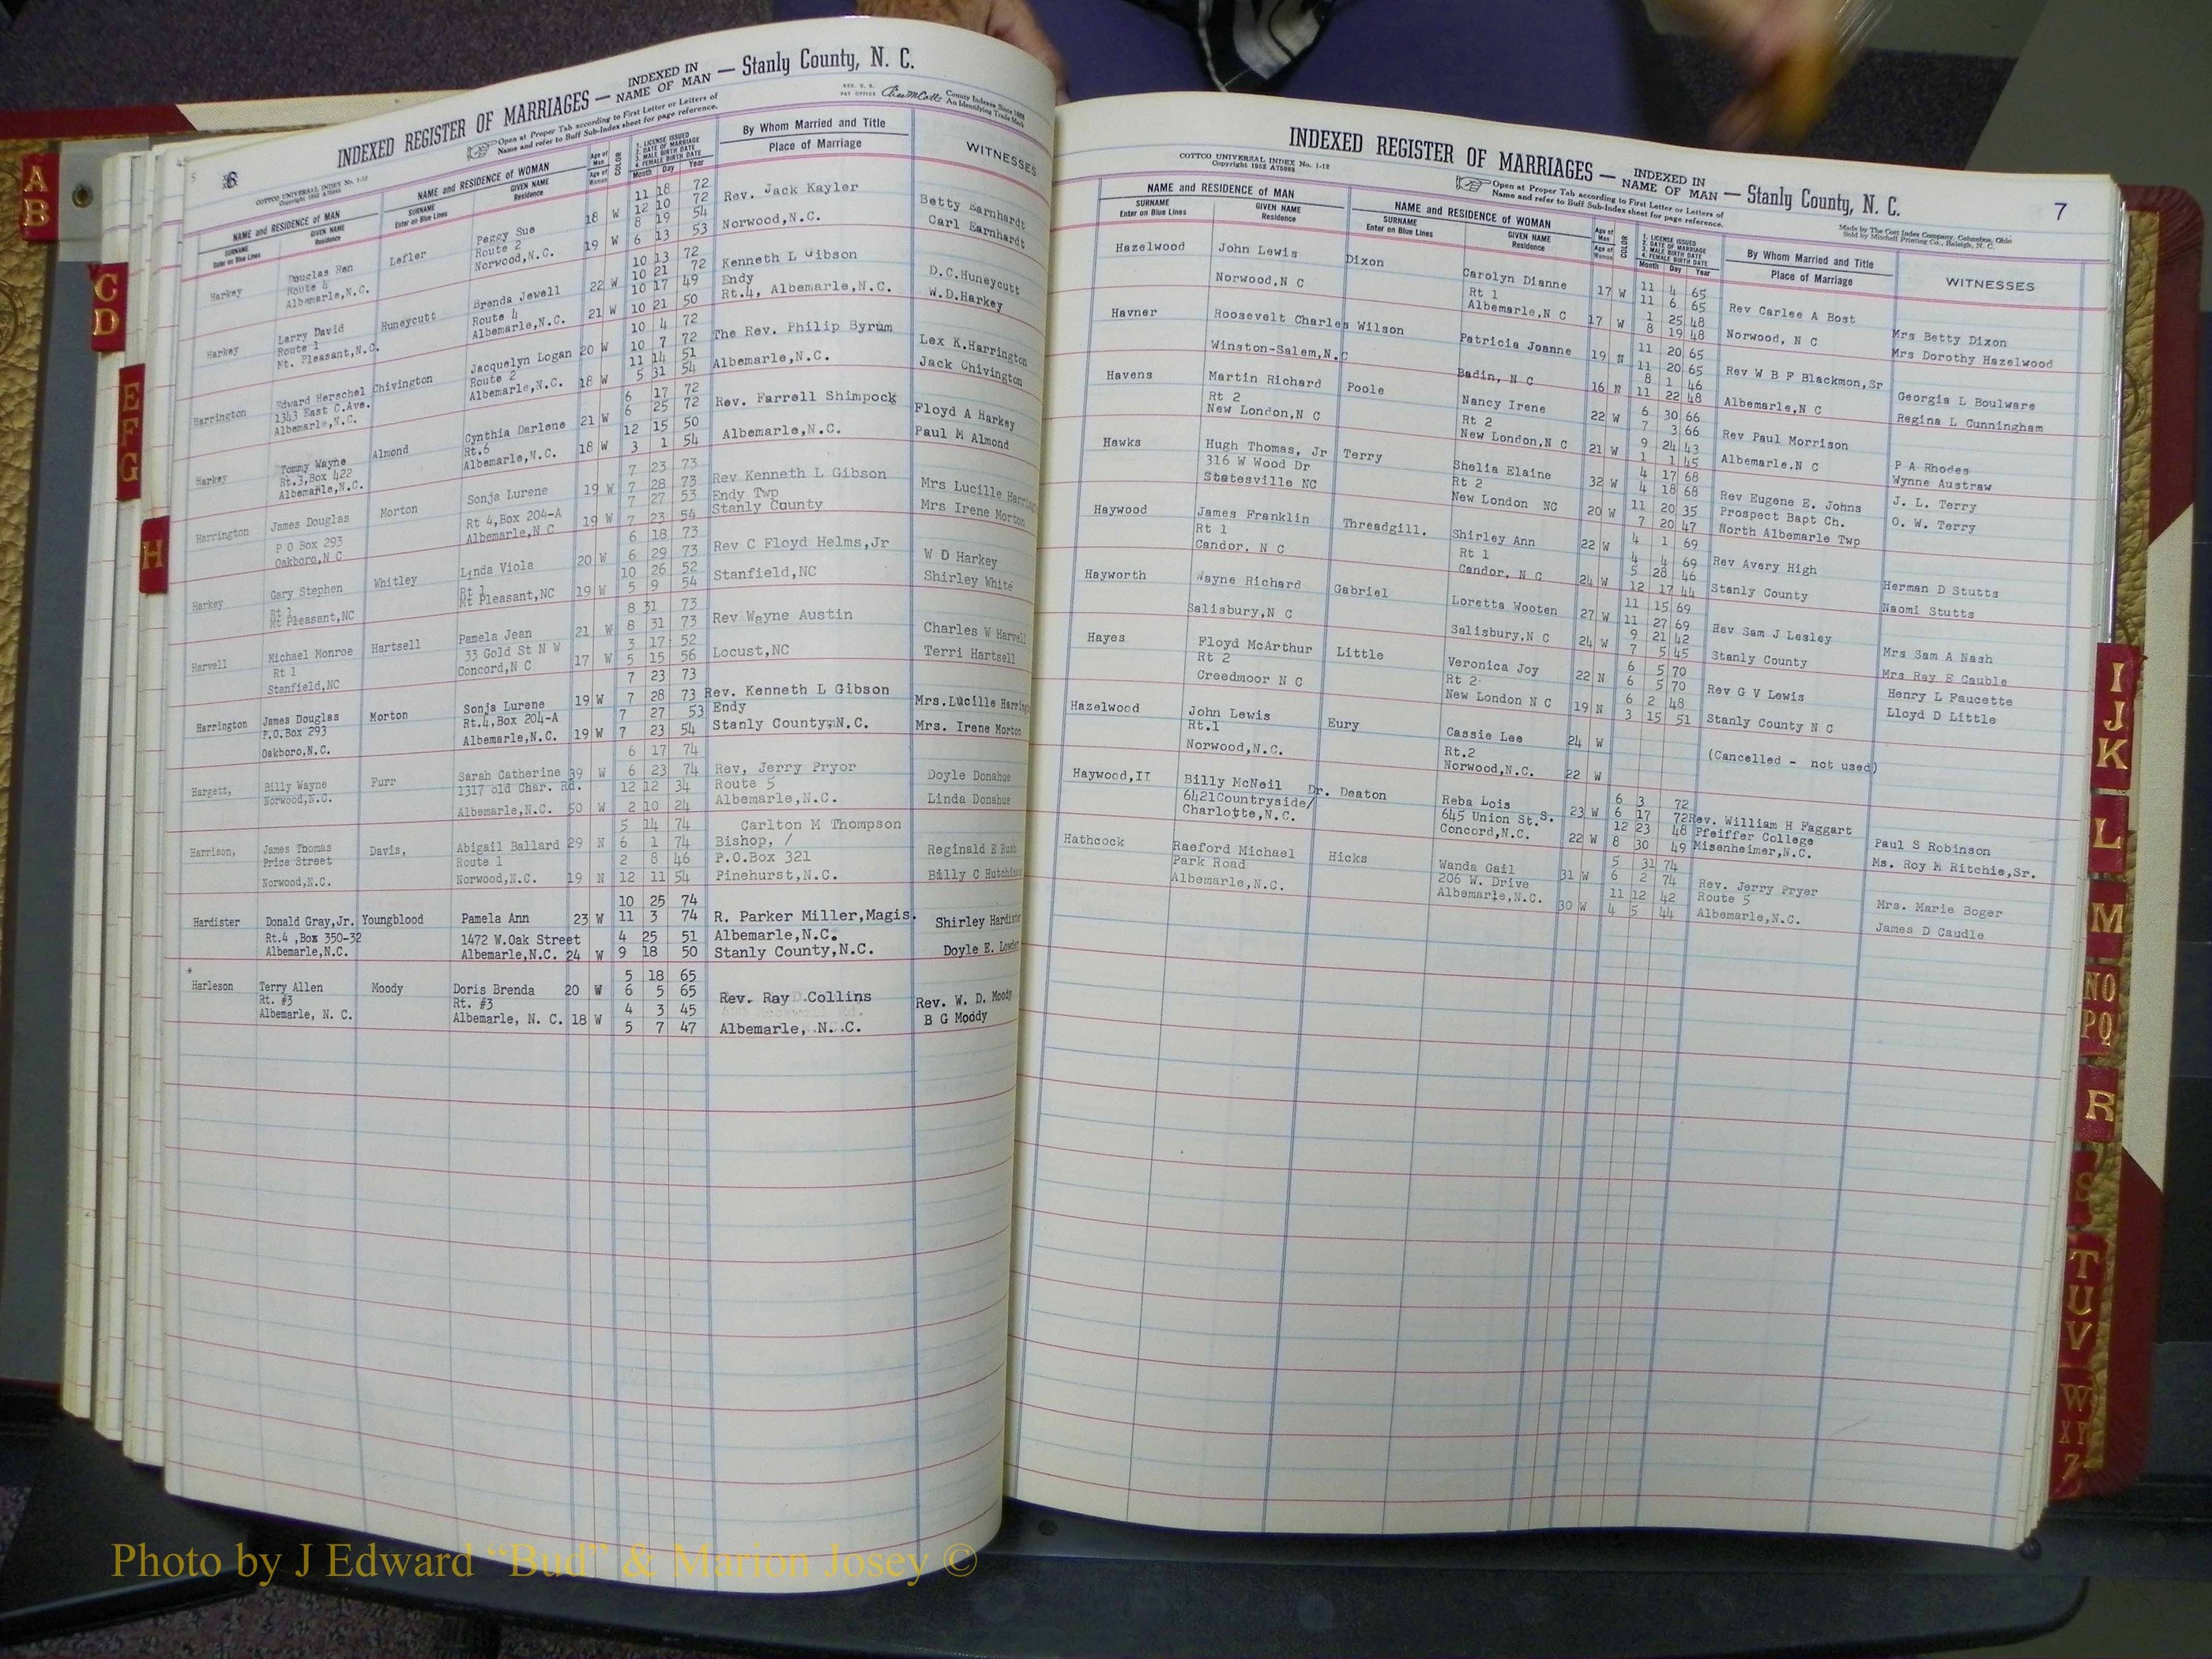 A
B
C
D
E
F
G
H
I
J
K
L
M
NO
PQ
R
S
T
U
V
W
X Y
Z
5 6
INDEXED REGISTER OF MARRIAGES — INDEXED IN NAME OF MAN — Stanly County, N. C.
Open at Proper Tab according to First Letter or Letters of
Name and refer to Buff Sub-Index sheet for page reference.
REG. U. S. PAT OFFICE
County Indexes Since 1888
An Identifying Trade Mark
COTTCO UNIVERSAL INDEX No. 1-12
NAME and RESIDENCE OF MAN
SURNAME Enter on Blue Lines
GIVEN NAME Residence
NAME and RESIDENCE OF WOMAN
SURNAME Enter on Blue Lines
GIVEN NAME Residence
Age of Man
Age of Woman
COLOR
1. LICENSE ISSUED
2. DATE OF MARRIAGE
3. MALE BIRTH DATE
4. FEMALE BIRTH DATE
Month Day Year
By Whom Married and Title
Place of Marriage
WITNESSES
11 18 72
Harkey Douglas Ren Lefler Peggy Sue 18 W 12 10 72 Rev. Jack Kayler Betty Earnhardt
Route 4 Route 2 8 19 54
Albemarle,N.C. Norwood,N.C. 19 W 6 13 53 Norwood,N.C. Carl Earnhardt
10 13 72
Harkey Larry David Huneycutt Brenda Jewell 22 W 10 21 72 Kenneth L Gibson D.C.Huneycutt
Route 1 Route 4 10 17 49 Endy
Mt. Pleasant,N.C. Albemarle,N.C. 21 W 10 21 50 Rt.4, Albemarle,N.C. W.D.Harkey
10 4 72
Harrington Edward Herschel Chivington Jacquelyn Logan 20 W 10 7 72 The Rev. Philip Byrum Lex K.Harrington
1343 East C.Ave. Route 2 11 14 51
Albemarle,N.C. Albemarle,N.C. 18 W 5 31 54 Albemarle,N.C. Jack Chivington
6 17 72
Harkey Tommy Wayne Almond Cynthia Darlene 21 W 6 25 72 Rev. Farrell Shimpock Floyd A Harkey
Rt.3,Box 422 Rt.6 12 15 50
Albemarle,N.C. Albemarle,N.C. 18 W 3 1 54 Albemarle,N.C. Paul M Almond
7 23 73
Harrington James Douglas Morton Sonja Lurene 19 W 7 28 73 Rev Kenneth L Gibson Mrs Lucille
P O Box 293 Rt 4,Box 204-A 7 27 53 Endy Twp
Oakboro,N.C Albemarle,N.C 19 W 7 23 54 Stanly County Mrs Irene Morton
6 18 73
Harkey Gary Stephen Whitley Linda Viola 20 W 6 29 73 Rev C Floyd Helms,Jr W D Harkey
Rt 1 Rt 1 10 26 52
Mt Pleasant,NC Mt Pleasant,NC 19 W 5 9 54 Stanfield,NC Shirley White
8 31 73
Harvell Michael Monroe Hartsell Pamela Jean 21 W 8 31 73 Rev Wayne Austin Charles W Harvell
Rt 1 33 Gold St N W 3 17 52
Stanfield,NC Concord,N C 17 W 5 15 56 Locust,NC Terri Hartsell
7 23 73
Harrington James Douglas Morton Sonja Lurene 19 W 7 28 73 Rev. Kenneth L Gibson Mrs.Lucille
P.O.Box 293 Rt.4,Box 204-A 7 27 53 Endy
Oakboro,N.C. Albemarle,N.C. 19 W 7 23 54 Stanly County,N.C. Mrs. Irene Morton
6 17 74
Hargett, Billy Wayne Furr Sarah Catherine 39 W 6 23 74 Rev, Jerry Pryor Doyle Donahue
Norwood,N.C. 1317 old Char. Rd. 12 12 34 Route 5
Albemarle,N.C. 50 W 2 10 24 Albemarle,N.C. Linda Donahue
5 14 74 Carlton M Thompson
Harrison, James Thomas Davis, Abigail Ballard 29 N 6 1 74 Bishop, / Reginald E
Price Street Route 1 2 8 46 P.O.Box 321
Norwood,N.C. Norwood,N.C. 19 N 12 11 54 Pinehurst,N.C. Billy C
10 25 74
Hardister Donald Gray,Jr. Youngblood Pamela Ann 23 W 11 3 74 R. Parker Miller,Magis. Shirley Hardister
Rt.4 ,Box 350-32 1472 W.Oak Street 4 25 51 Albemarle,N.C.
Albemarle,N.C. Albemarle,N.C. 24 W 9 18 50 Stanly County,N.C. Doyle E. Lowder
*
5 18 65
Harleson Terry Allen Moody Doris Brenda 20 W 6 5 65 Rev. Ray D.Collins Rev. W. D. Moody
Rt. #3 Rt. #3 4 3 45
Albemarle, N. C. Albemarle, N. C. 18 W 5 7 47 Albemarle, N. C. B G Moody
INDEXED REGISTER OF MARRIAGES — INDEXED IN NAME OF MAN — Stanly County, N. C.
7
COTTCO UNIVERSAL INDEX No. 1-12
Copyright 1952 A75085
Open at Proper Tab according to First Letter or Letters of
Name and refer to Buff Sub-Index sheet for page reference.
Made by The Cott Index Company, Columbus, Ohio
Sold by Mitchell Printing Co., Raleigh, N. C.
NAME and RESIDENCE OF MAN
SURNAME Enter on Blue Lines
GIVEN NAME Residence
NAME and RESIDENCE OF WOMAN
SURNAME Enter on Blue Lines
GIVEN NAME Residence
Age of Man
Age of Woman
COLOR
1. LICENSE ISSUED
2. DATE OF MARRIAGE
3. MALE BIRTH DATE
4. FEMALE BIRTH DATE
Month Day Year
By Whom Married and Title
Place of Marriage
WITNESSES
11 4 65
Hazelwood John Lewis Dixon Carolyn Dianne 17 W 11 6 65 Rev Carlee A Bost Mrs Betty Dixon
Rt 1 1 25 48
Norwood,N C Albemarle,N C 17 W 8 19 48 Norwood, N C Mrs Dorothy Hazelwood
11 20 65
Havner Roosevelt Charles Wilson Patricia Joanne 19 N 11 20 65 Rev W B F Blackmon,Sr Georgia L Boulware
8 1 46
Winston-Salem,N.C Badin, N C 16 N 11 22 48 Albemarle,N C Regina L Cunningham
6 30 66
Havens Martin Richard Poole Nancy Irene 22 W 7 3 66 Rev Paul Morrison P A Rhodes
Rt 2 Rt 2 9 24 43
New London,N C New London,N C 21 W 1 1 45 Albemarle.N C Wynne Austraw
4 17 68
Hawks Hugh Thomas, Jr Terry Shelia Elaine 32 W 4 18 68 Rev Eugene E. Johns J. L. Terry
316 W Wood Dr Rt 2 11 20 35 Prospect Bapt Ch.
Statesville NC New London NC 20 W 7 20 47 North Albemarle Twp O. W. Terry
4 1 69
Haywood James Franklin Threadgill. Shirley Ann 22 W 4 4 69 Rev Avery High Herman D Stutts
Rt 1 Rt 1 5 28 46
Candor, N C Candor, N C 24 W 12 17 44 Stanly County Naomi Stutts
11 15 69
Hayworth Wayne Richard Gabriel Loretta Wooten 27 W 11 27 69 Rev Sam J Lesley Mrs Sam A Nash
9 21 42
Salisbury,N C Salisbury,N C 24 W 7 5 45 Stanly County Mrs Ray E Cauble
6 5 70
Hayes Floyd McArthur Little Veronica Joy 22 N 6 5 70 Rev G V Lewis Henry L Faucette
Rt 2 Rt 2 6 2 48
Creedmoor N C New London N C 19 N 3 15 51 Stanly County N C Lloyd D Little
Hazelwood John Lewis Eury Cassie Lee 24 W (Cancelled - not used)
Rt.1 Rt.2
Norwood,N.C. Norwood,N.C. 22 W
6 3 72
Haywood,II Billy McNeil Dr. Deaton Reba Lois 23 W 6 17 72 Rev. William H Faggart Paul S Robinson
6421Countryside/ 645 Union St.S. 12 23 48 Pfeiffer College
Charlotte,N.C. Concord,N.C. 22 W 8 30 49 Misenheimer,N.C. Ms. Roy M Ritchie,Sr.
5 31 74
Hathcock Raeford Michael Hicks Wanda Gail 31 W 6 2 74 Rev. Jerry Pryer Mrs. Marie Boger
Park Road 206 W. Drive 11 12 42 Route 5
Albemarle,N.C. Albemarle,N.C. 30 W 4 5 44 Albemarle,N.C. James D Caudle
Photo by J Edward “Bud” & Marion Josey ©